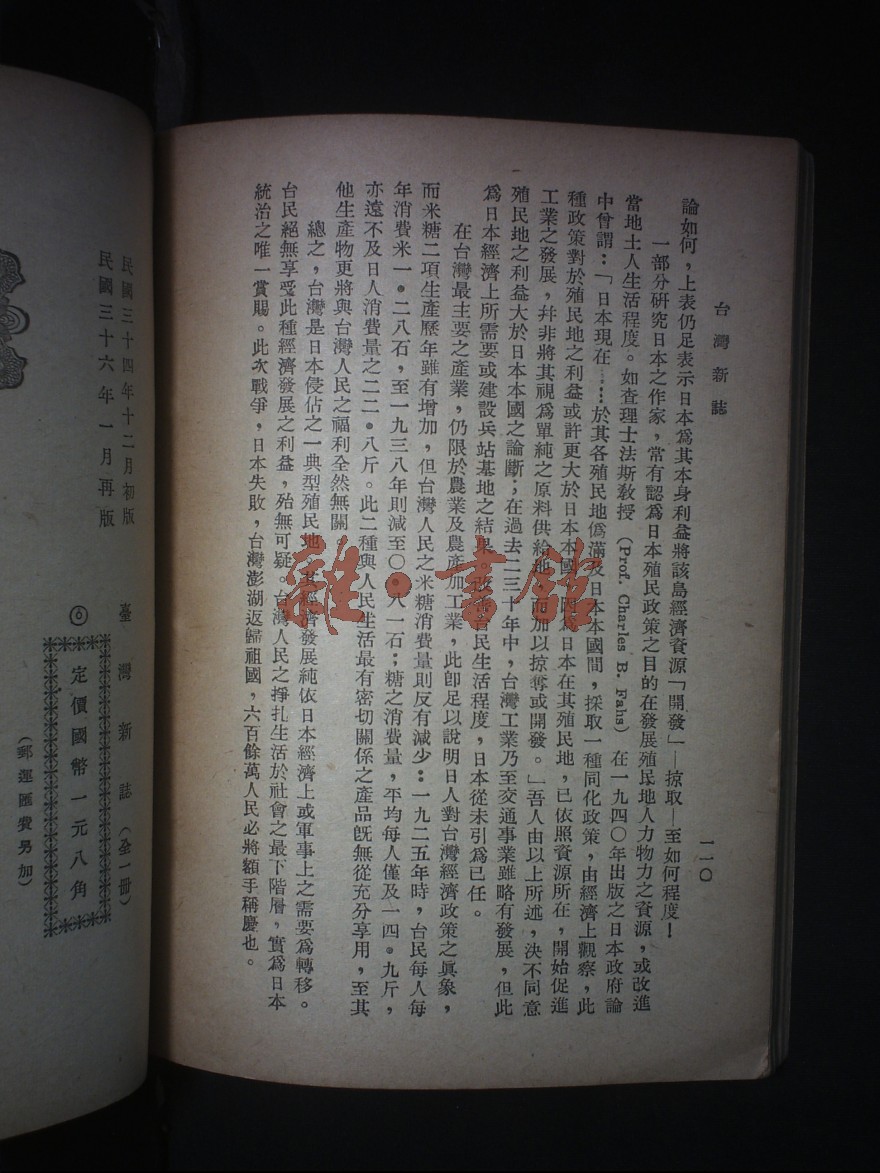 台灣新誌
一一〇
論如何，上表仍足表示日本爲其本身利益將該島經濟資源「開發」—掠取—至如何程度！
一部分硏究日本之作家，常有認爲日本殖民政策之目的在發展殖民地人力物力之資源，或改進
當地土人生活程度。如查理士法斯敎授（Prof. Charles B. Fahs）在一九四〇年出版之日本政府論
中曾謂：「日本現在……於其各殖民地僞滿及日本本國間，採取一種同化政策，由經濟上觀察，此
種政策對於殖民地之利益或許更大於日本本國，因爲日本在其殖民地，已依照資源所在，開始促進
工業之發展，幷非將其視爲單純之原料供給地，而加以掠奪或開發。」吾人由以上所述，決不同意
殖民地之利益大於日本本國之論斷；在過去二三十年中，台灣工業乃至交通事業雖略有發展，但此
爲日本經濟上所需要或建設兵站基地之結果，改善台民生活程度，日本從未引爲已任。
在台灣最主要之產業，仍限於農業及農產加工業，此卽足以說明日人對台灣經濟政策之眞象，
而米糖二項生產歷年雖有增加，但台灣人民之米糖消費量則反有減少：一九二五年時，台民每人每
年消費米一．二八石，至一九三八年則減至〇．八一石；糖之消費量，平均每人僅及一四．九斤，
亦遠不及日人消費量之二二．八斤。此二種與人民生活最有密切關係之產品旣無從充分享用，至其
他生產物更將與台灣人民之福利全然無關。
總之，台灣是日本侵佔之一典型殖民地，其經濟發展純依日本經濟上或軍事上之需要爲轉移。
台民絕無享受此種經濟發展之利益，殆無可疑。台灣人民之掙扎生活於社會之最下階層，實爲日本
統治之唯一賞賜。此次戰爭，日本失敗，台灣澎湖返歸祖國，六百餘萬人民必將額手稱慶也。
民國三十四年十二月初版
民國三十六年一月再版
臺灣新誌（全一冊）
定價國幣一元八角
（郵運匯費另加）
雜·書館